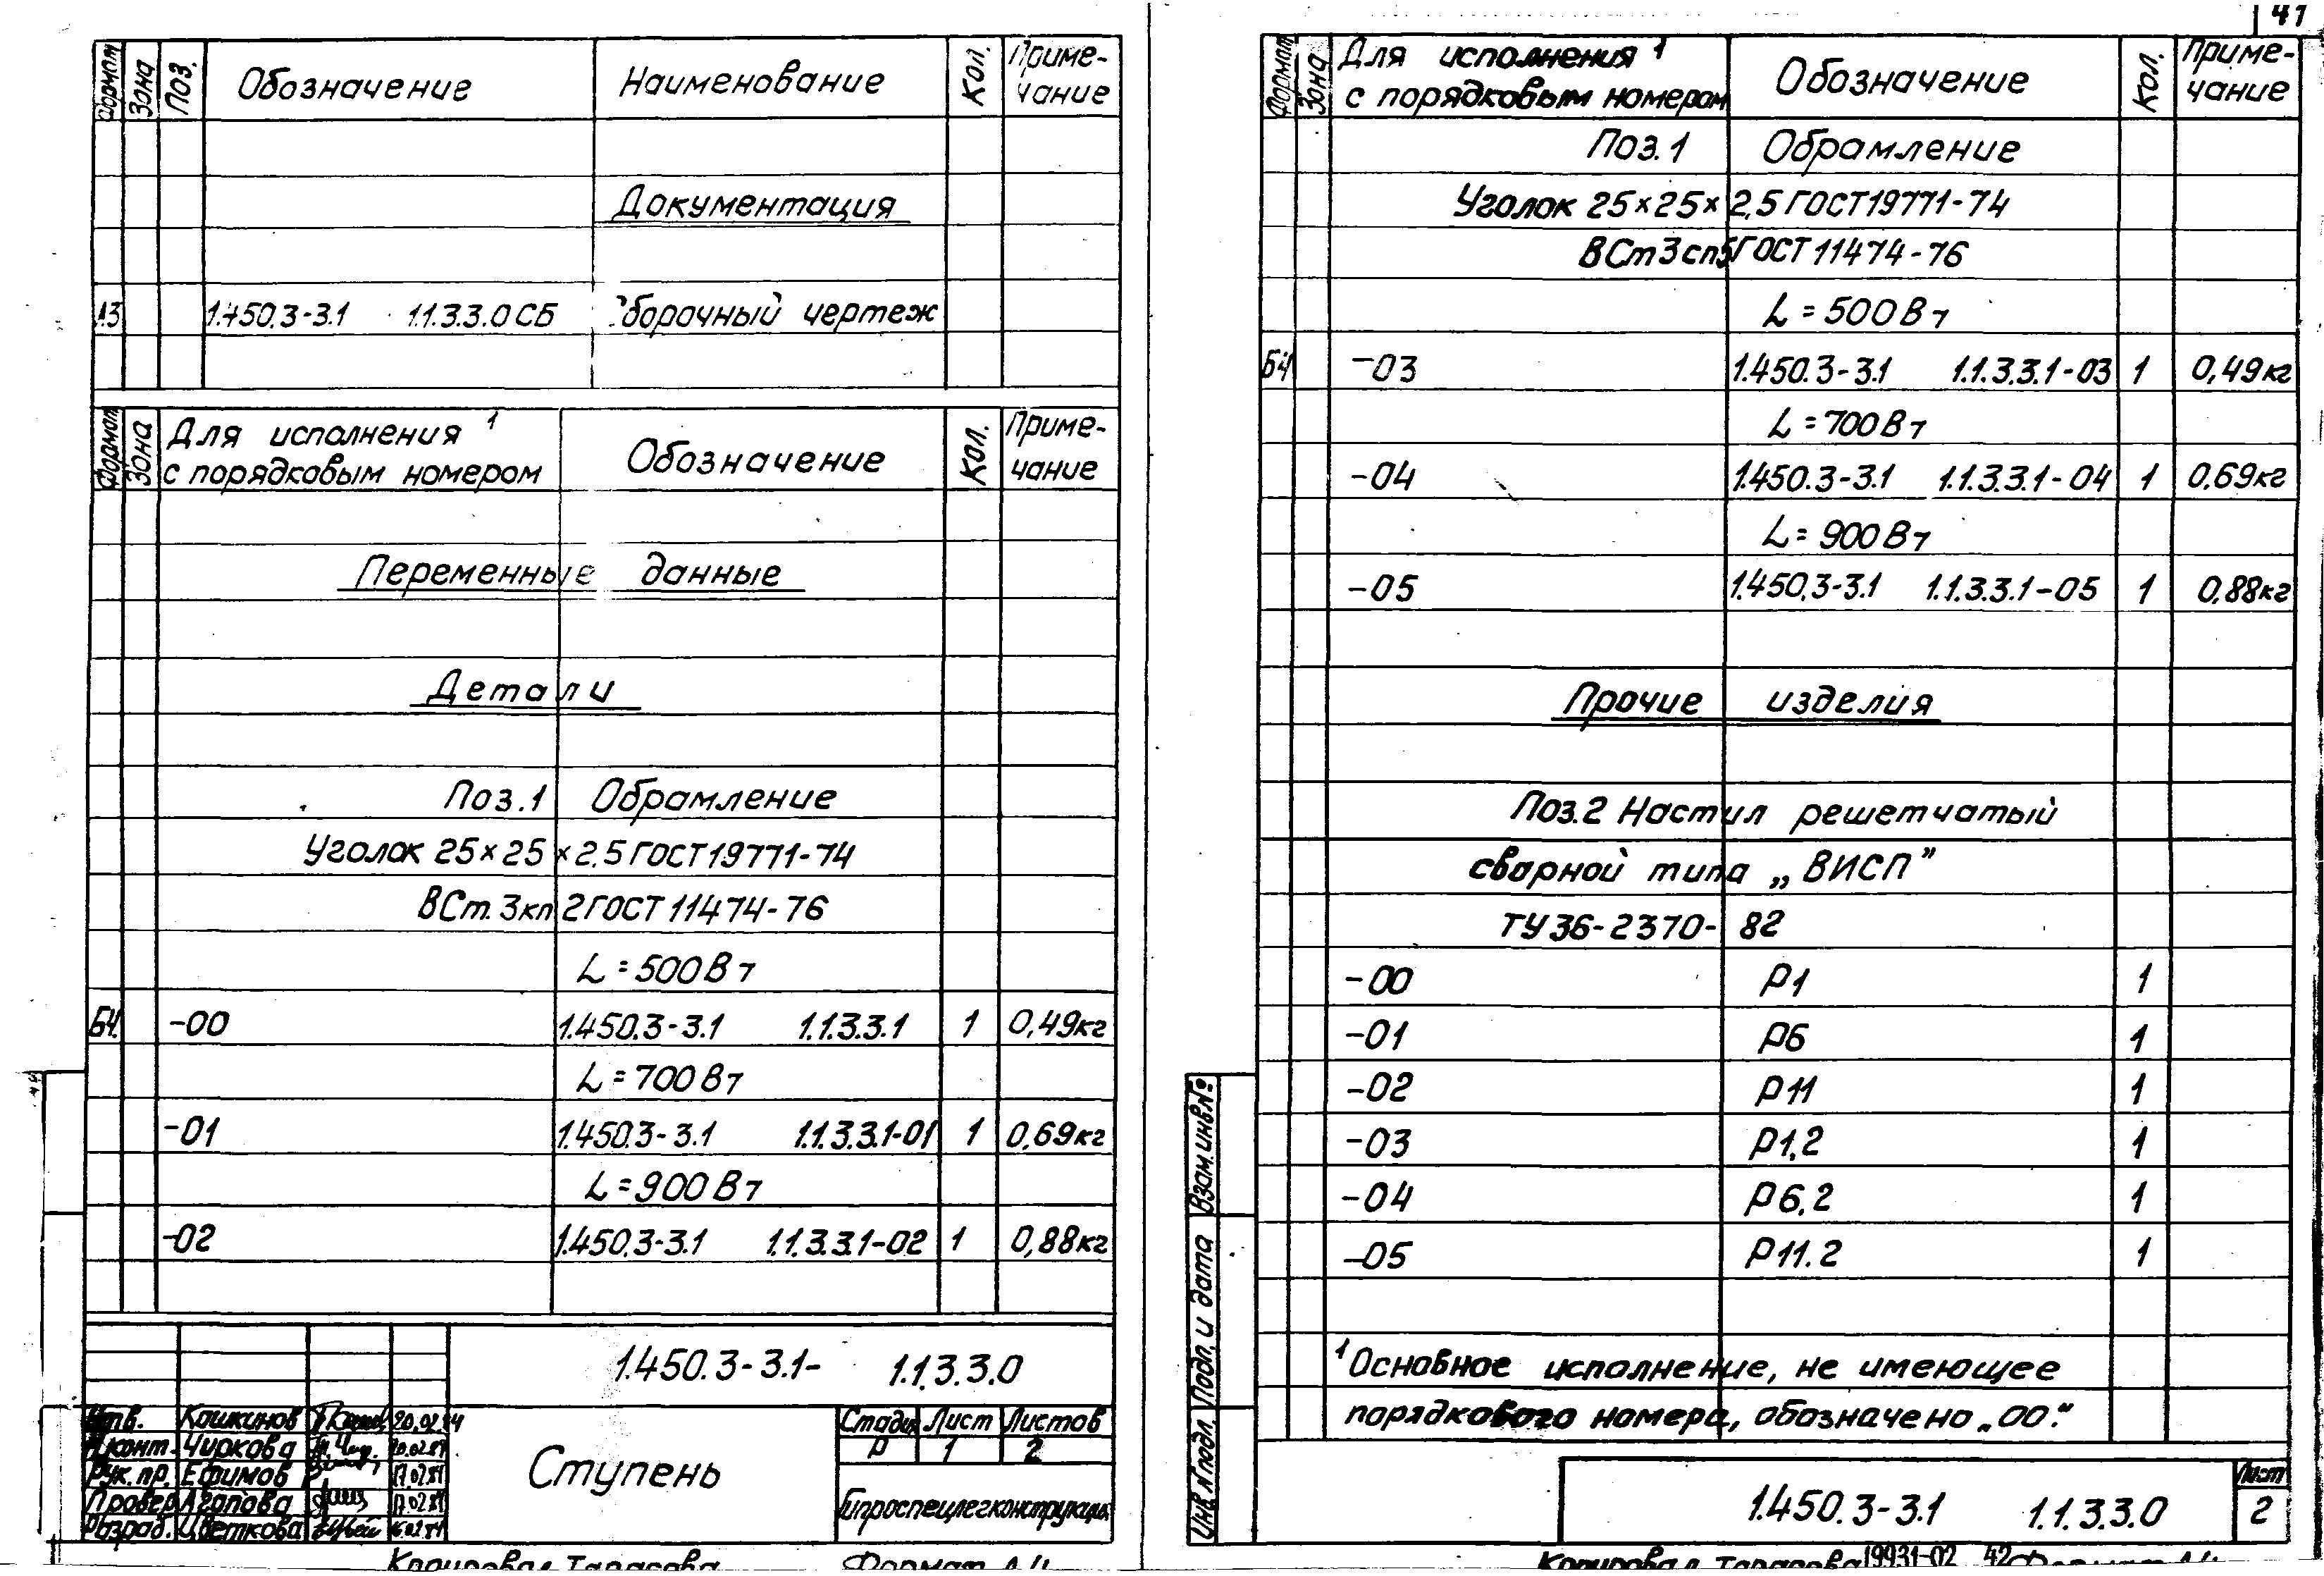 Формат Зона Поз. Обозначение Наименование Кол. Приме-
чание
Документация
А3 1.450.3-3.1 1.1.3.3.0 СБ Сборочный чертеж
Формат Зона Для исполнения ¹ Обозначение Кол. Приме-
с порядковым номером чание
Переменные данные
Детали
Поз.1 Обрамление
Уголок 25×25×2,5 ГОСТ 19771-74
ВСт.3кп2 ГОСТ 11474-76
L=500 Вт
БЧ. -00 1.450.3-3.1 1.1.3.3.1 1 0,49кг
L=700 Вт
-01 1.450.3-3.1 1.1.3.3.1-01 1 0,69кг
L=900 Вт
-02 1.450.3-3.1 1.1.3.3.1-02 1 0,88кг
1.450.3-3.1- 1.1.3.3.0
Утв. Кошкинов 20.02.84
Н.конт. Чиркова 20.02.84
Рук.пр. Ефимов 17.02.84
Провер. Агапова 17.02.84
Разраб. Цветкова 16.02.84
Ступень
Стадия Лист Листов
Р 1 2
Гипроспецлегконструкция
Копировал Тарасова Формат А4
41
Формат Зона Для исполнения ¹ Обозначение Кол. Приме-
с порядковым номером чание
Поз.1 Обрамление
Уголок 25×25×2,5 ГОСТ 19771-74
ВСт3сп5 ГОСТ 11474-76
L=500 Вт
БЧ -03 1.450.3-3.1 1.1.3.3.1-03 1 0,49кг
L=700 Вт
-04 1.450.3-3.1 1.1.3.3.1-04 1 0,69кг
L=900 Вт
-05 1.450.3-3.1 1.1.3.3.1-05 1 0,88кг
Прочие изделия
Поз.2 Настил решетчатый
сварной типа „ВИСП"
ТУ 36-2370-82
-00 Р1 1
-01 Р6 1
-02 Р11 1
-03 Р1.2 1
-04 Р6.2 1
-05 Р11.2 1
¹ Основное исполнение, не имеющее
порядкового номера, обозначено „00."
Взам.инв.№
Подп. и дата
Инв.№подл.
1.450.3-3.1 1.1.3.3.0
Лист
2
Копировал Тарасова 19931-02 42 Формат А4